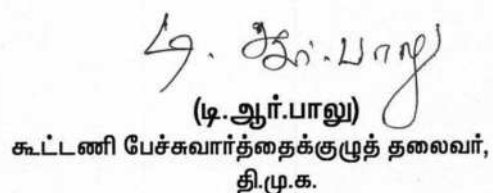 டி. ஆர்.பாலு
(டி.ஆர்.பாலு)
கூட்டணி பேச்சுவார்த்தைக்குழுத் தலைவர்,
தி.மு.க.